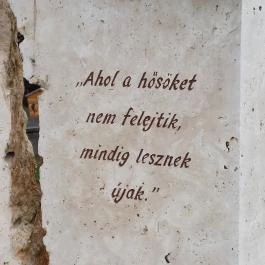 „Ahol a hősöket
nem felejtik,
mindig lesznek
újak.”